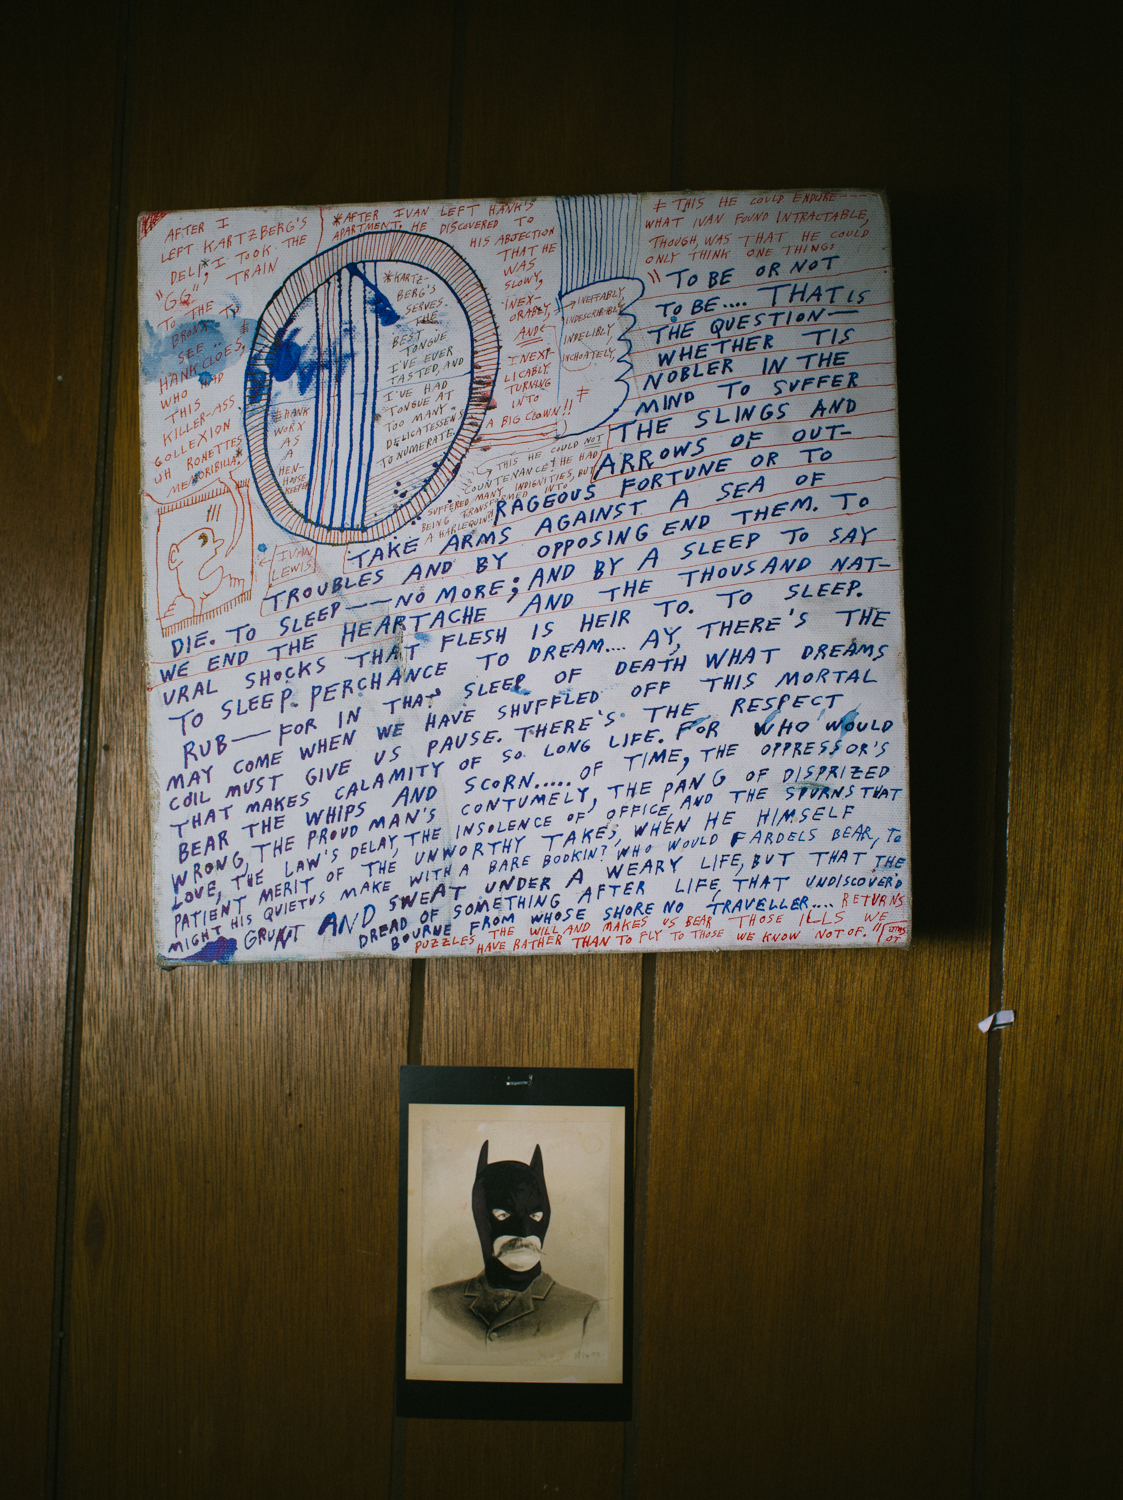 AFTER I
LEFT KARTZBERG'S
DELI*, I TOOK THE
"GG" TRAIN,
TO THE
BRONX TO
SEE
HANK CLOES,
WHO HAD
THIS
KILLER-ASS
COLLEXION
UH RONETTES
MEMORIBILIA.*
*AFTER IVAN LEFT HANK'S
APARTMENT, HE DISCOVERED TO
HIS ABJECTION
THAT HE
WAS
SLOWY,
INEX-
ORABLY,
AND
INEXP-
LICABLY
TURNING
INTO
A BIG CLOWN!! ‡
*KARTZ-
BERG'S
SERVES
THE
BEST
TONGUE
I'VE EVER
TASTED, AND
I'VE HAD
TONGUE AT
TOO MANY
DELICATESSENS
TO NUMERATE.
HANK
WORX
AS
A
HEN-
HOUSE
KEEPER
INEFFABLY,
INDESCRIBABLY
INDELIBLY,
INCHOATELY,
THIS HE COULD NOT
COUNTENANCE! HE HAD
SUFFERED MANY INDIGNITIES, BUT
BEING TRANSFORMED INTO
A HARLEQUIN?!
IVAN
LEWIS
‡ THIS HE COULD ENDURE----
WHAT IVAN FOUND INTRACTABLE,
THOUGH, WAS THAT HE COULD
ONLY THINK ONE THING:
"TO BE OR NOT
TO BE.... THAT IS
THE QUESTION—
WHETHER TIS
NOBLER IN THE
MIND TO SUFFER
THE SLINGS AND
ARROWS OF OUT-
RAGEOUS FORTUNE OR TO
TAKE ARMS AGAINST A SEA OF
TROUBLES AND BY OPPOSING END THEM. TO
DIE. TO SLEEP—— NO MORE; AND BY A SLEEP TO SAY
WE END THE HEARTACHE AND THE THOUSAND NAT-
URAL SHOCKS THAT FLESH IS HEIR TO. TO SLEEP.
TO SLEEP. PERCHANCE TO DREAM.... AY, THERE'S THE
RUB— FOR IN THAT SLEEP OF DEATH WHAT DREAMS
MAY COME WHEN WE HAVE SHUFFLED OFF THIS MORTAL
COIL MUST GIVE US PAUSE. THERE'S THE RESPECT
THAT MAKES CALAMITY OF SO LONG LIFE. FOR WHO WOULD
BEAR THE WHIPS AND SCORN..... OF TIME, THE OPPRESSOR'S
WRONG, THE PROUD MAN'S CONTUMELY, THE PANG OF DISPRIZED
LOVE, THE LAW'S DELAY, THE INSOLENCE OF OFFICE, AND THE SPURNS THAT
PATIENT MERIT OF THE UNWORTHY TAKES, WHEN HE HIMSELF
MIGHT HIS QUIETUS MAKE WITH A BARE BODKIN? WHO WOULD FARDELS BEAR, TO
GRUNT AND SWEAT UNDER A WEARY LIFE, BUT THAT THE
DREAD OF SOMETHING AFTER LIFE, THAT UNDISCOVER'D
BOURNE FROM WHOSE SHORE NO TRAVELLER.... RETURNS
PUZZLES THE WILL AND MAKES US BEAR THOSE ILLS WE
HAVE RATHER THAN TO FLY TO THOSE WE KNOW NOT OF."